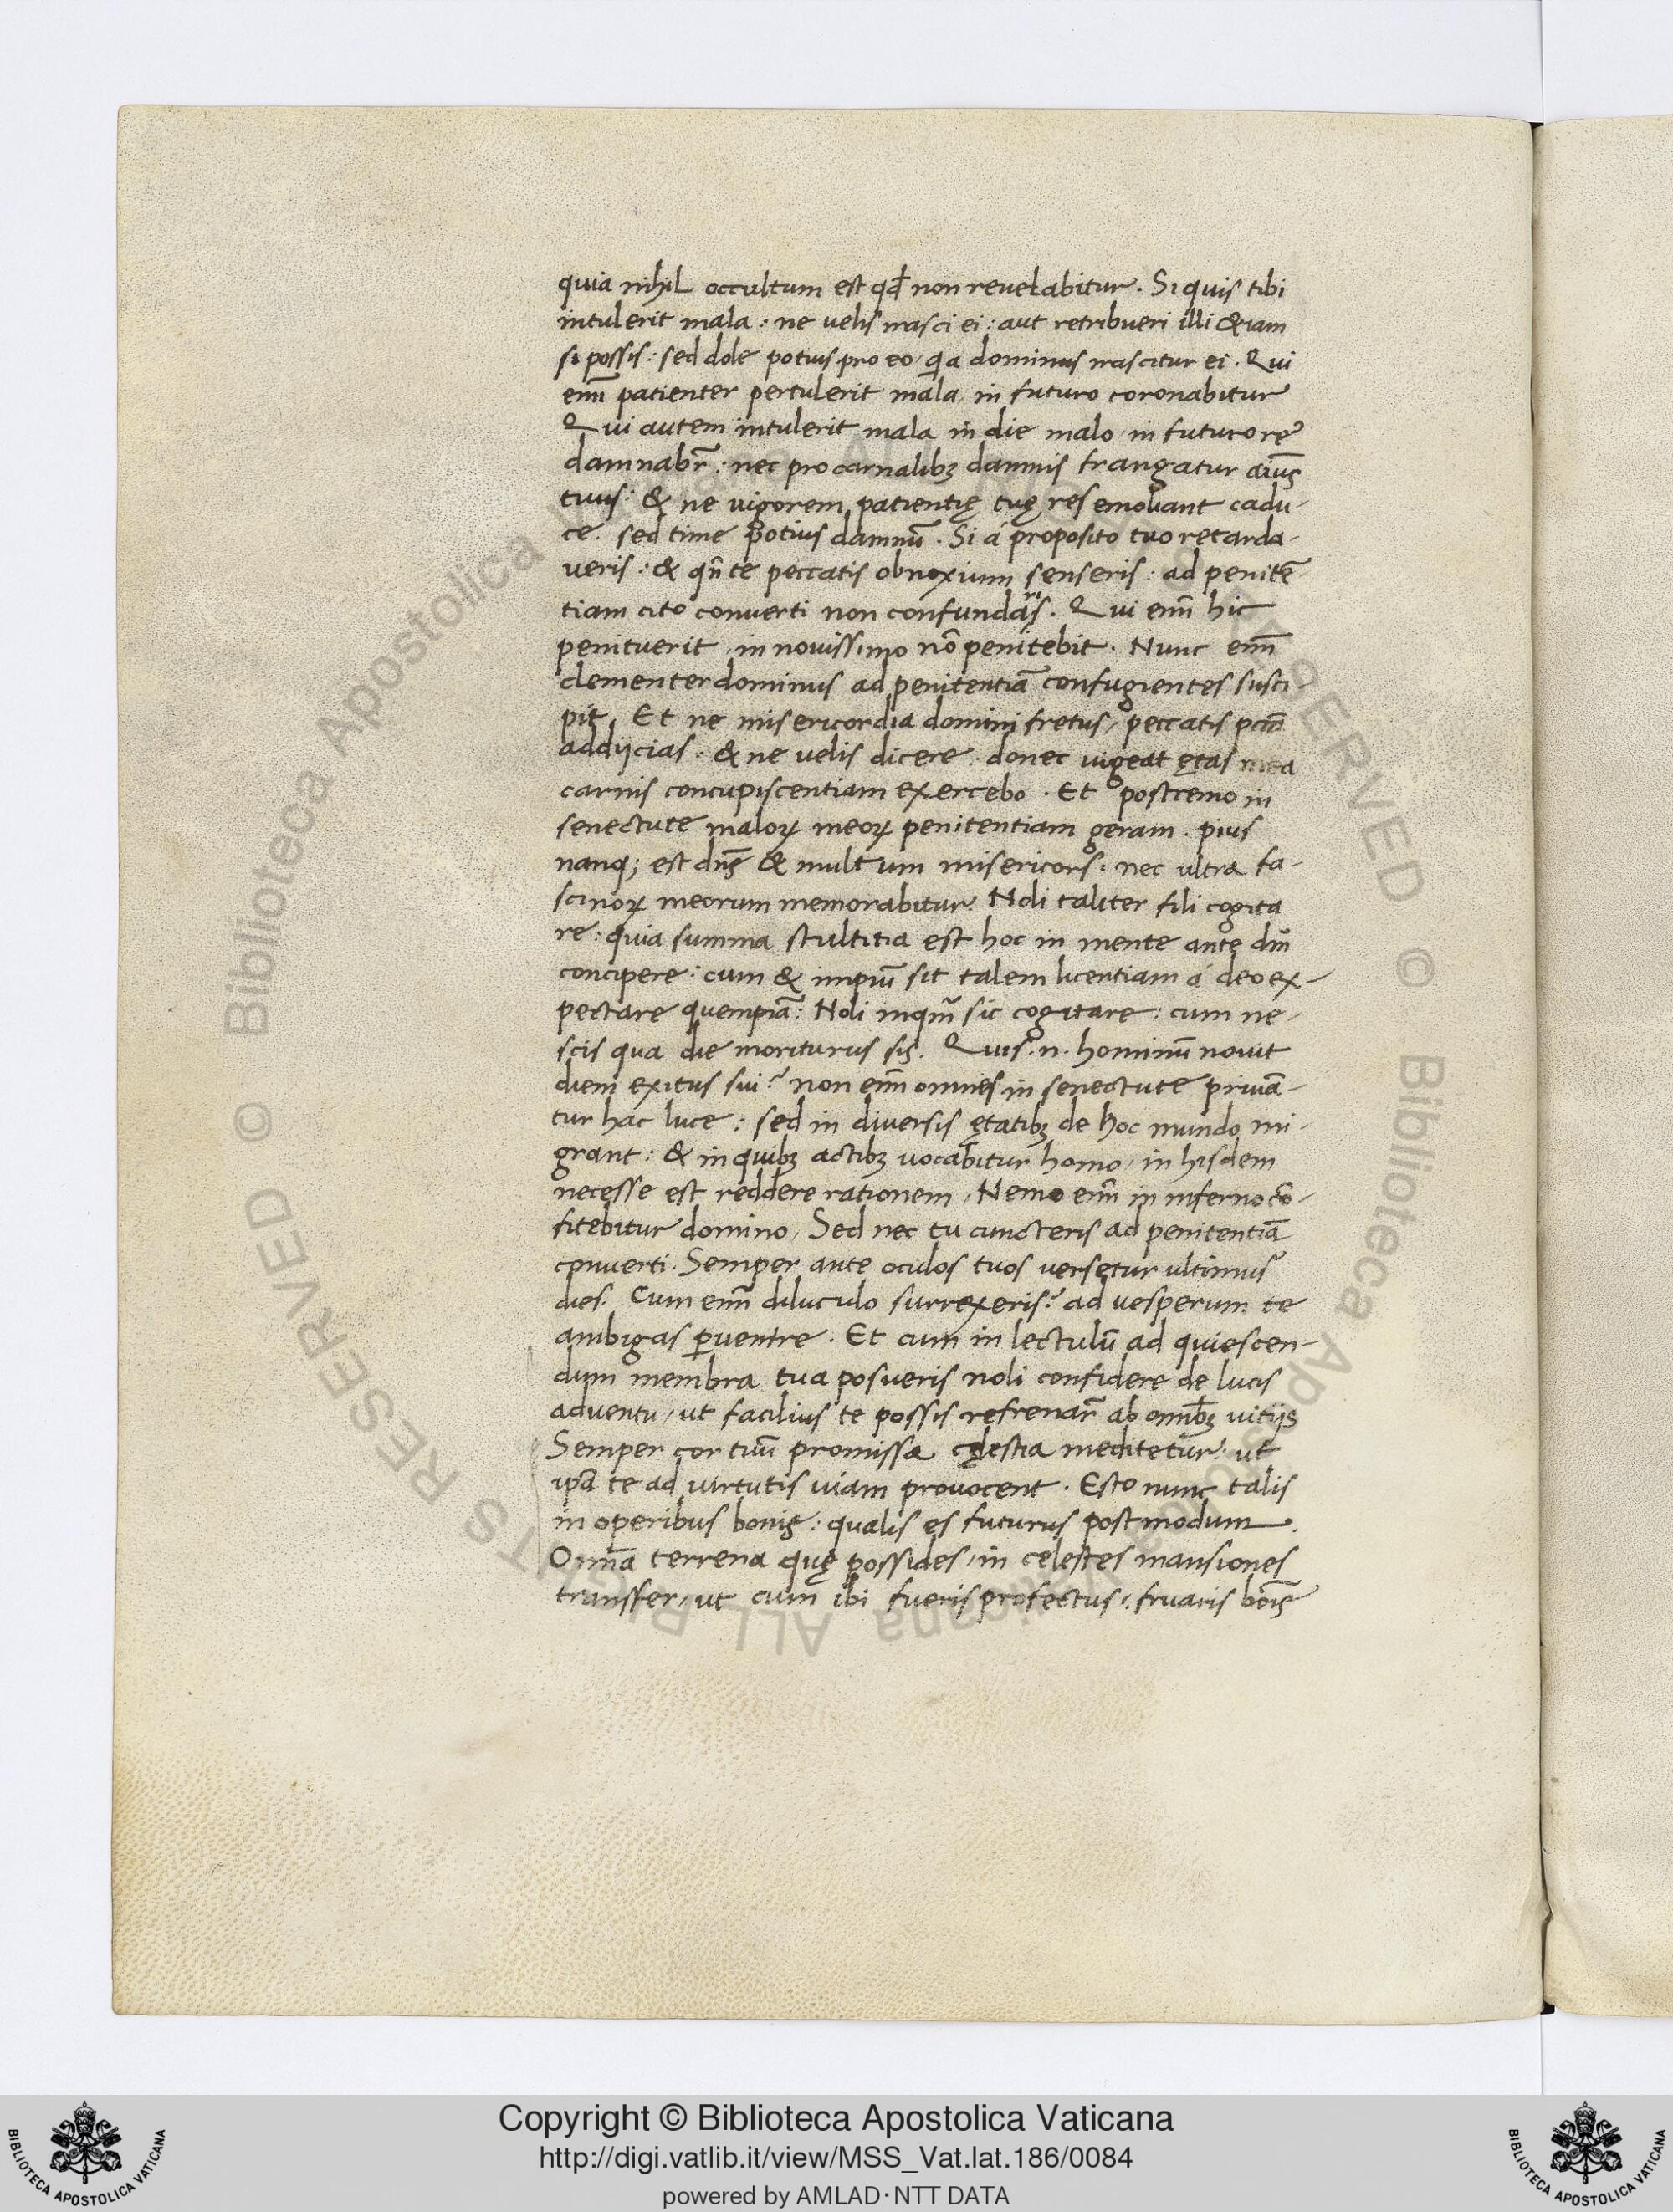 quia nihil occultum est qđ non reuelabitur. Si quis tibi
intulerit mala: ne uelis irasci ei: aut retribueri illi &iam
si possis: sed dole potius pro eo, qi̇a dominus irascitur ei. Qui
enī patienter pertulerit mala, in futuro coronabitur
Qui autem intulerit mala in die malo in futuro re
damnabr̄: nec pro carnalibꝫ damnis frangatur aīus
tuus: & ne uigorem patientię tuę res emoliant cadu-
ce. sed time potius damnū. Si á proposito tuo retarda-
ueris: & qn̄ te peccatis obnoxium senseris: ad penitē-
tiam cito conuerti non confundaris. Qui enī hic
penituerit, in nouissimo nō penitebit. Nunc enī
clementer dominus ad penitentiā confugientes susci-
pit, Et ne misericordia domini fretus, peccatis pcm̄
addijcias: & ne uelis dicere: donec uigeat ętas mea
carnis concupiscentiam exercebo. Et postremo in
senectute maloꝝ meoꝝ penitentiam geram. pius
nanq; est dn̄s & multum misericors: nec ultra fa-
scinoꝝ meorum memorabitur. Noli taliter fili cogita
re: quia summa stultitia est hoc in mente ante dm̄
concipere: cum & impiū sit talem licentiam á deo ex-
pectare quempiā: Noli inqm̄ sic cogitare: cum ne-
scis qua die moriturus sis. Quis .n. hominū nouit
diem exitus sui? non enī omnes in senectute priuā-
tur hac luce: sed in diuersis ętatibꝫ de hoc mundo mi-
grant: & in quibꝫ actibꝫ uocabitur homo, in hisdem
necesse est reddere rationem, Nemo enī in inferno cō-
fitebitur domino, Sed nec tu cuncteris ad penitentiā
conuerti. Semper ante oculos tuos uersetur ultimus
dies. Cum enī diluculo surrexeris? ad uesperum te
ambigas ꝑuenire. Et cum in lectulū ad quiescen-
dum membra tua posueris noli confidere de lucis
aduentu, ut facilius te possis refrenar̄ ab omībꝫ uitijs
Semper cor tuū promissa cęlestia meditetur: ut
ipā te ad uirtutis uiam prouocent. Esto nunc talis
in operibus bonis: qualis es futurus postmodum.
Omīa terrena quę possides, in celestes mansiones
transfer, ut cum ibi fueris profectus: fruaris bōis
© Biblioteca Apostolica Vaticana ALL RIGHTS RESERVED
© Biblioteca Apostolica Vaticana ALL RIGHTS RESERVED
BIBLIOTECA APOSTOLICA VATICANA
Copyright © Biblioteca Apostolica Vaticana
http://digi.vatlib.it/view/MSS_Vat.lat.186/0084
powered by AMLAD·NTT DATA
BIBLIOTECA APOSTOLICA VATICANA